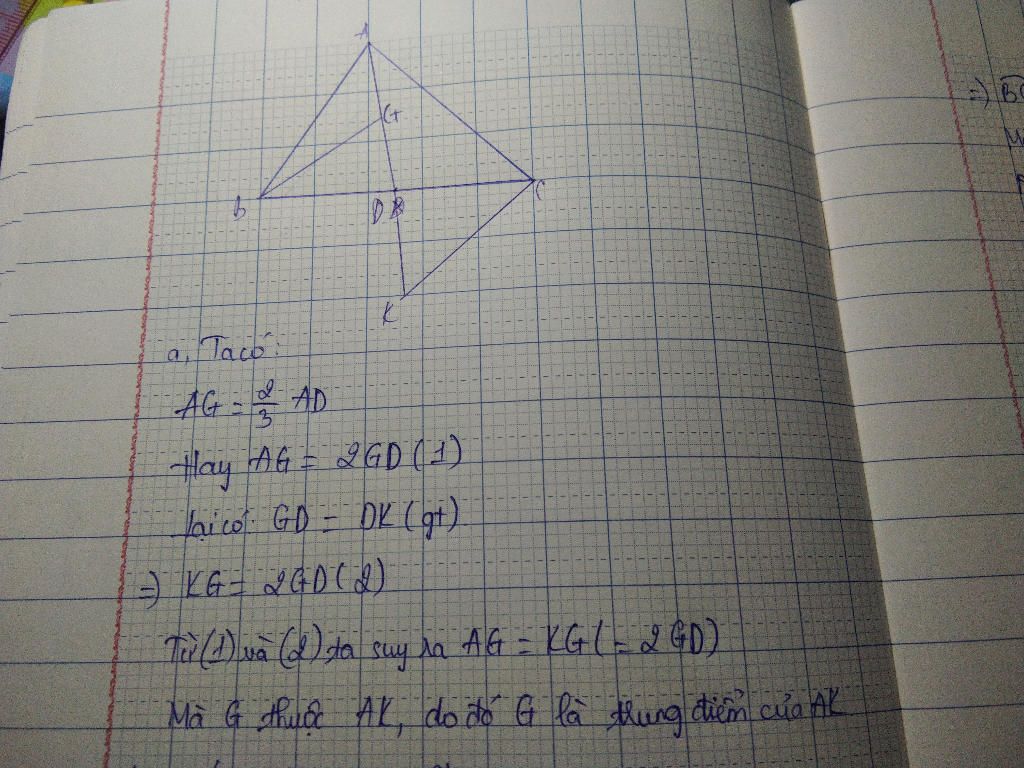 A
G
B
D
C
K
a, Ta có:
AG = 2/3 AD
Hay AG = 2GD (1)
Lại có: GD = DK (gt)
=) KG = 2GD (2)
Từ (1) và (2) ta suy ra AG = KG (= 2GD)
Mà G thuộc AK, do đó G là trung điểm của AK
=)